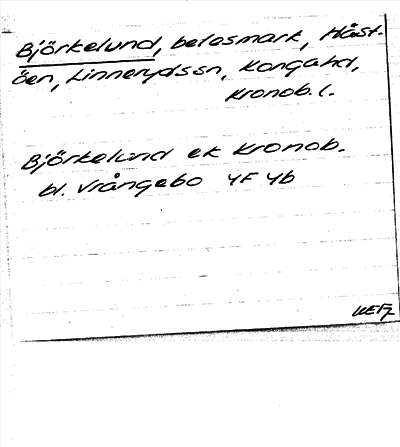 Björkelund, betesmark, Häst-
ön, Linnerydssn, Kongahd,
Kronob. l.
Björkelund ek Kronob.
bl. Vrångebo 4F 4b